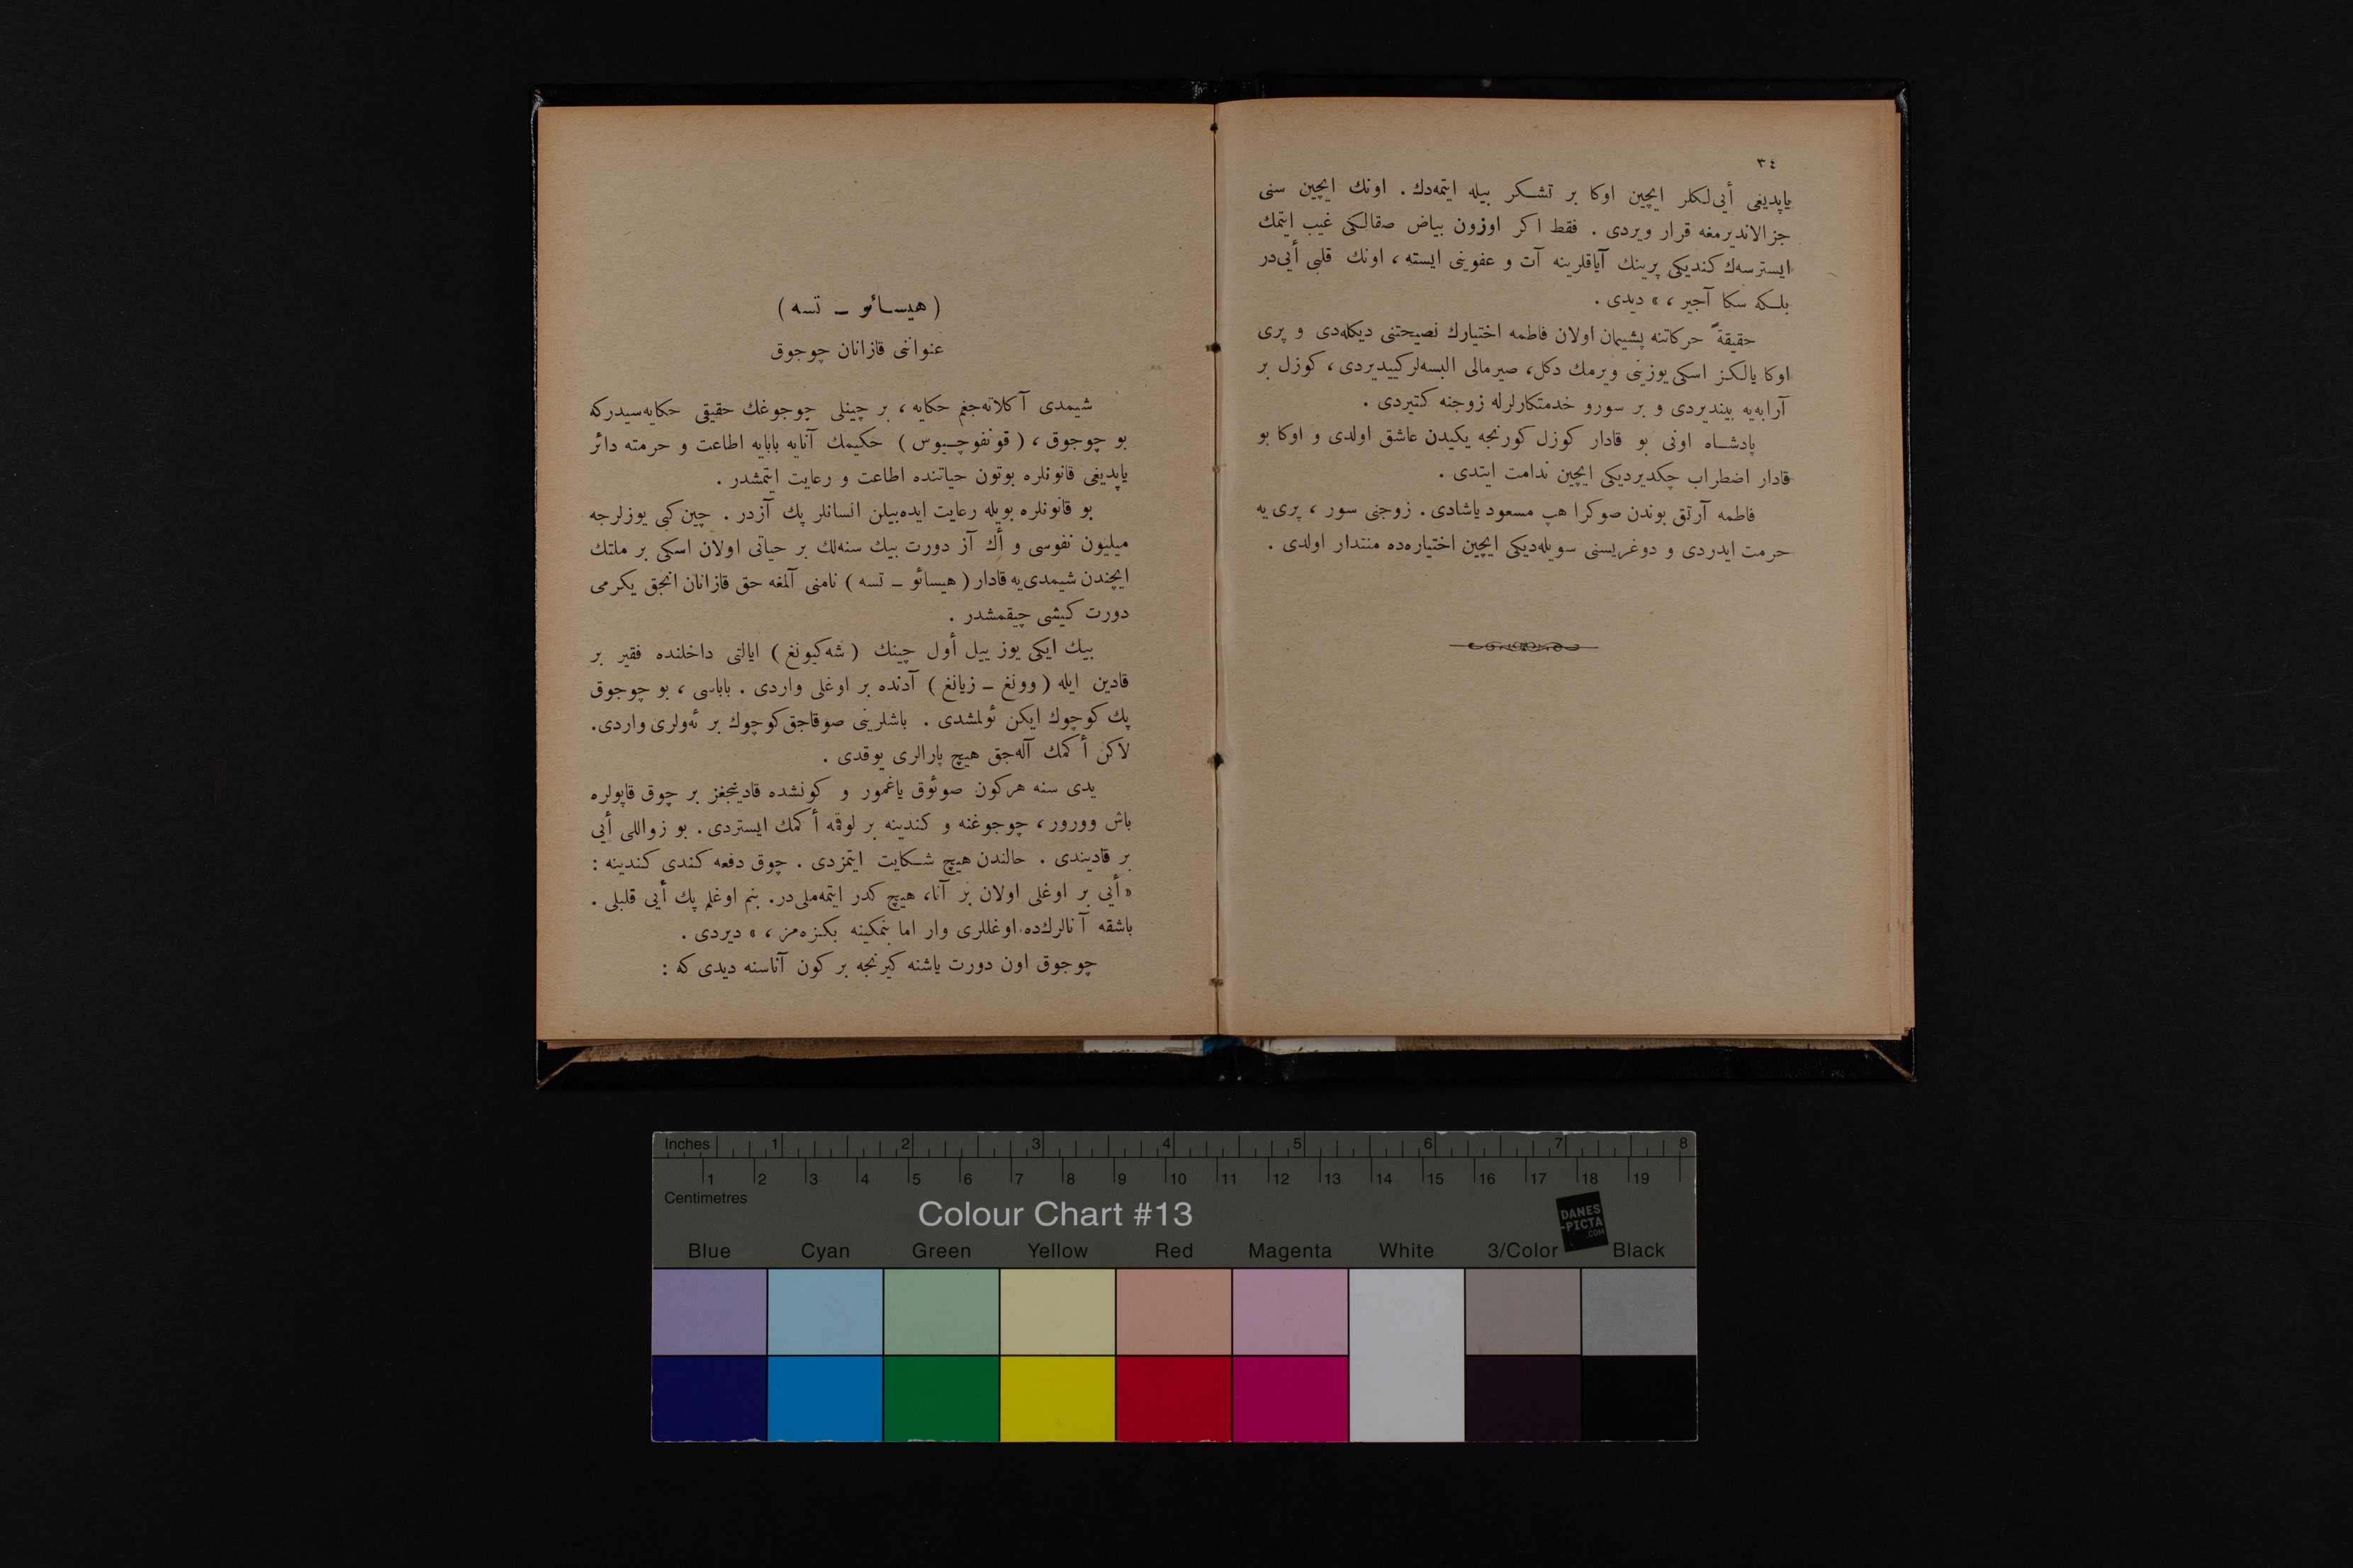 ٣٤
ياپديغی أیی‌لكلر ایچین اوكا بر تشكر بیله ایتمه‌دك . اونك ایچین سنی
جزالاندیرمغه قرار ویردی . فقط اكر اوزون بیاض صقالكی غیب ایتمك
ایسترسه‌ك كندیكی پرینك آیاقلرینه آت و عفوینی ایسته ، اونك قلبی أیی‌در
بلكه سكا آجیر ، » دیدی .
حقیقةً حركاتنه پشیمان اولان فاطمه اختیارك نصیحتنی دیكله‌دی و پری
اوكا یالكز اسكی یوزینی ویرمك دكل، صیرمالی البسه‌لر كییدیردی ، كوزل بر
آرابه‌یه بیندیردی و بر سورو خدمتكارلرله زوجنه كتیردی .
پادشاه اونی بو قادار كوزل كورنجه یكیدن عاشق اولدی و اوكا بو
قادار اضطراب چكدیردیكی ایچین ندامت ایتدی .
فاطمه آرتق بوندن صوكرا هپ مسعود یاشادی . زوجنی سور ، پری یه
حرمت ایدردی و دوغریسنی سویله‌دیكی ایچین اختیاره‌ده منتدار اولدی .
( هیسائو ــ تسه )
عنواننی قازانان چوجوق
شیمدی آكلاته‌جغم حكایه ، بر چینلی چوجوغك حقیقی حكایه‌سیدركه
بو چوجوق ، ( قونفوچیوس ) حكیمك آنایه بابایه اطاعت و حرمته دائر
یاپدیغی قانونلره بوتون حیاتنده اطاعت و رعایت ایتمشدر .
بو قانونلره بویله رعایت ایده‌بیلن انسانلر پك آزدر . چین كبی یوزلرجه
میلیون نفوسی و أك آز دورت بیك سنه‌لك بر حیاتی اولان اسكی بر ملتك
ایچندن شیمدی‌یه قادار ( هیسائو ــ تسه ) نامنی آلمغه حق قازانان انجق یكرمی
دورت كیشی چیقمشدر .
بیك ایكی یوز ییل أول چینك ( شه كیونغ ) ایالتی داخلنده فقیر بر
قادین ایله ( وونغ ــ زیانغ ) آدنده بر اوغلی واردی . باباسی ، بو چوجوق
پك كوچوك ایكن ئولمشدی . باشلرینی صوقاجق كوچوك بر ئه‌ولری واردی.
لاكن أكمك آله‌جق هیچ پارالری یوقدی .
یدی سنه هركون صوئوق یاغمور و كونشده قادینجغز بر چوق قاپولره
باش وورور ، چوجوغنه و كندینه بر لوقمه أكمك ایستردی . بو زواللی أیی
بر قادیندی . حالندن هیچ شكایت ایتمزدی . چوق دفعه كندی كندینه :
« أیی بر اوغلی اولان بر آنا، هیچ كدر ایتمه‌ملی‌در. بنم اوغلم پك أیی قلبلی .
باشقه آنالرك‌ده اوغللری وار اما بنمكینه بكزه‌مز ، » دیردی .
چوجوق اون دورت یاشنه كیرنجه بر كون آناسنه دیدی كه :
Inches 1 2 3 4 5 6 7 8
1 2 3 4 5 6 7 8 9 10 11 12 13 14 15 16 17 18 19
Centimetres
Colour Chart #13
DANES
-PICTA
.COM
Blue Cyan Green Yellow Red Magenta White 3/Color Black